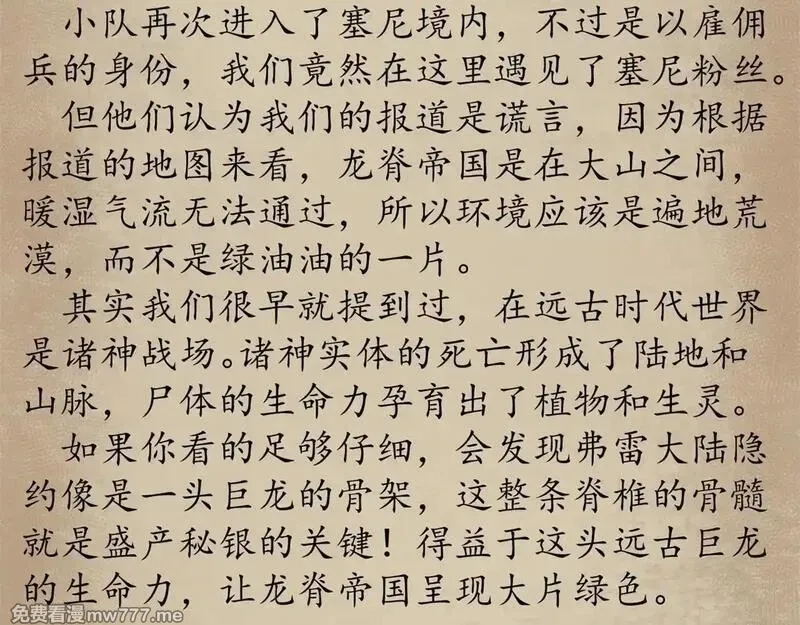 小队再次进入了塞尼境内，不过是以雇佣
兵的身份，我们竟然在这里遇见了塞尼粉丝。
但他们认为我们的报道是谎言，因为根据
报道的地图来看，龙脊帝国是在大山之间，
暖湿气流无法通过，所以环境应该是遍地荒
漠，而不是绿油油的一片。
其实我们很早就提到过，在远古时代世界
是诸神战场。诸神实体的死亡形成了陆地和
山脉，尸体的生命力孕育出了植物和生灵。
如果你看的足够仔细，会发现弗雷大陆隐
约像是一头巨龙的骨架，这整条脊椎的骨髓
就是盛产秘银的关键！得益于这头远古巨龙
的生命力，让龙脊帝国呈现大片绿色。
免费看漫mw777.me